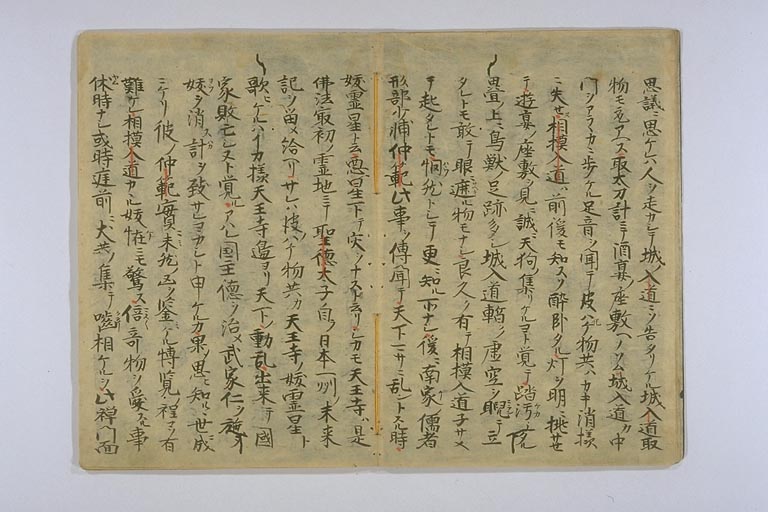 思議ニ思ケレハ人ヲ走ラカシテ城ノ入道ニソ告タリケル城入道取
物モ取アヘス取太刀計ニテ酒宴ノ座敷ヘソ入ル城入道カ中
門ヲアララカニ歩ケル足音ヲ聞テ皮ハケ物共ハカキ消様
ニ失セ相模入道ハ前後モ知ス酔臥タル灯ヲ明ニ挑サセ
テ遊宴ノ座敷ヲ見ニ誠ニ天狗ノ集リケルヨト覚テ踏汚シタル
畳上ニ鳥獣ノ足跡多シ城入道暫ノ虚空ヲ睨テ立
タレトモ敢テ眼遮ル物モナシ良久ノ有テ相模入道子サメ
テ起タレトモ惘然トシテ更ニ知ル所ナシ後ニ南家ノ儒者
形部少輔仲範此事ヲ傳聞テ天下ニサニ乱ントスル時
妖霊星ト云悪星下テ災ヲナスト云リシカモ天王寺ハ是
佛法最初ノ霊地ニテ聖徳太子自日本一州ノ未来
記ヲ留メ給ヘリサレハ彼ハケ物共カ天王寺ノ妖霊星ト
歌ヒケルハイカ様天王寺邉ヨリ天下ノ動乱出来テ國
家敗亡シヌト覚ルアハレ國王徳ヲ治メ武家仁ヲ施シテ
妖ヲ消ス計ヲ致サレヨカシト申ケルカ果ノ思ヒ知ルル世ニ成
ニケリ彼ノ仲範實ニ未然ノ凶ヲ鑒ケル博覧ノ程コソ有
難ケレ相模入道カカル妖怪ニモ驚ス倍奇物ヲ愛スル事
休時ナシ或時庭前ニ犬共ノ集テ噛相ケルヲ此禅門面